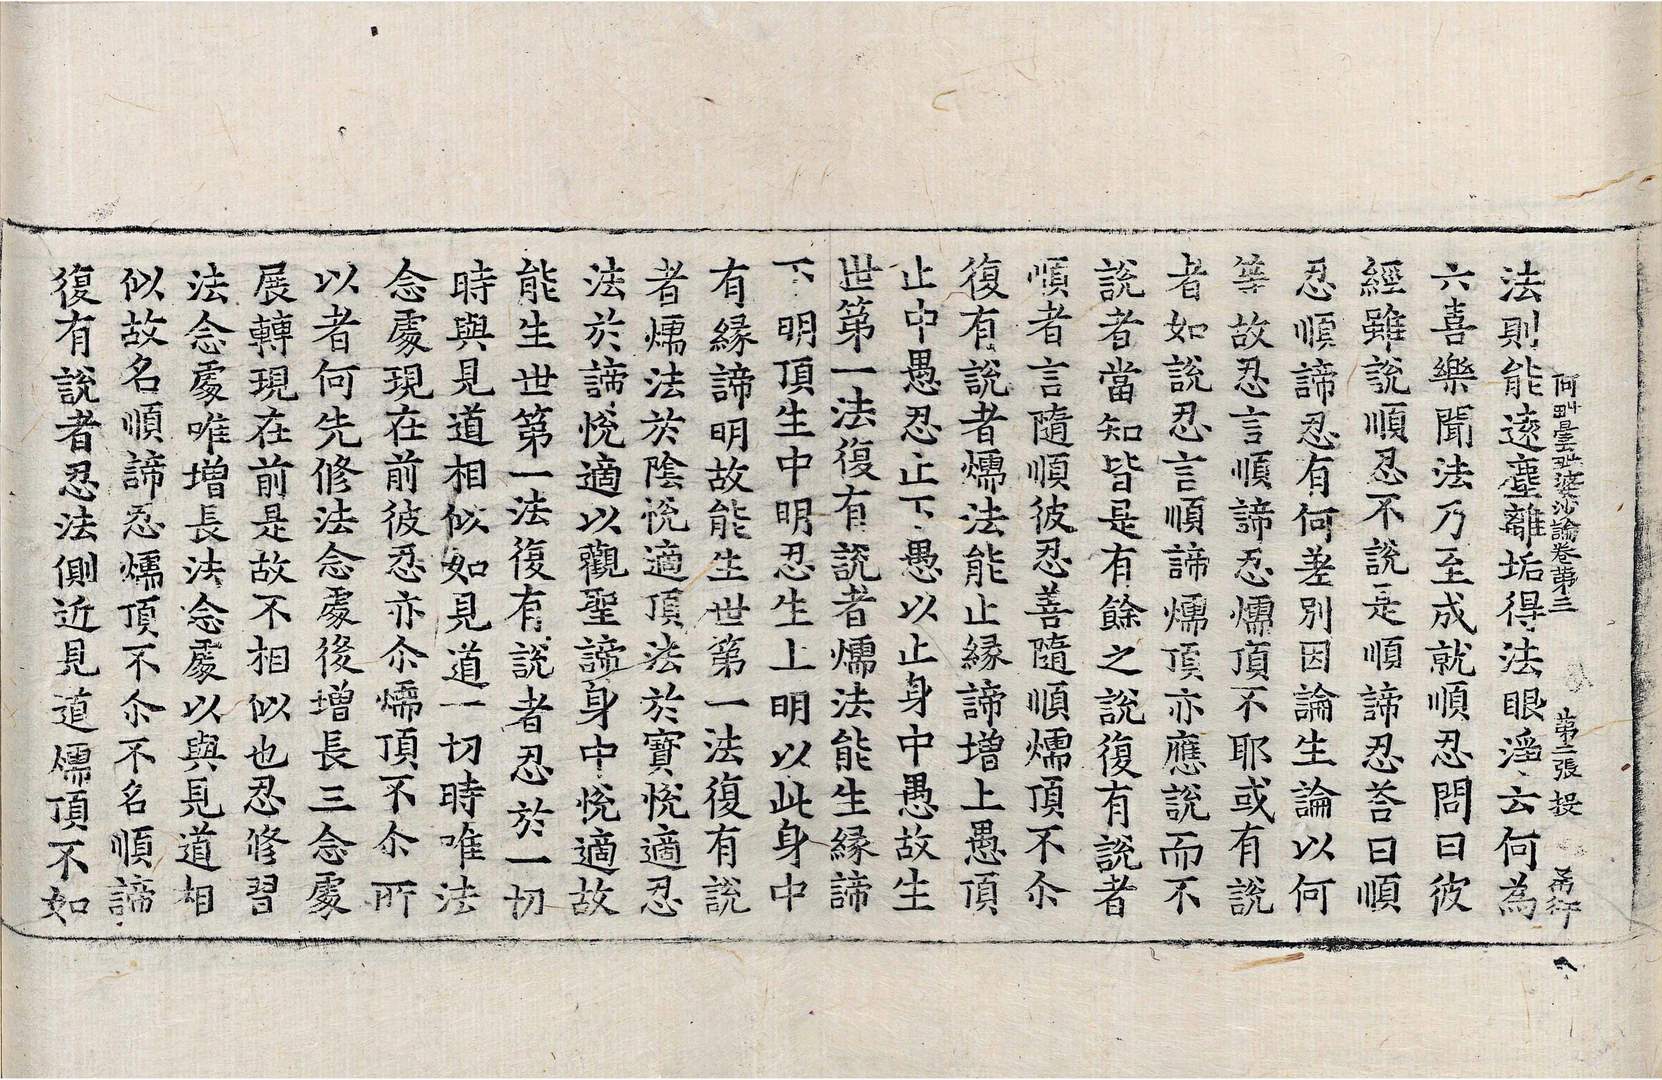 阿毗曇毗婆沙論卷第三　第二張　投
法則能遠塵離垢得法眼淨云何為
六喜樂聞法乃至成就順忍問曰彼
經雖說順忍不說是順諦忍荅曰順
忍順諦忍有何差別因論生論以何
等故忍言順諦忍煗頂不耶或有說
者如說忍言順諦煗頂亦應說而不
說者當知皆是有餘之說復有說者
順者言隨順彼忍善隨順煗頂不尒
復有說者煗法能止緣諦增上愚頂
止中愚忍止下愚以止身中愚故生
世第一法復有說者煗法能生緣諦
下明頂生中明忍生上明以此身中
有緣諦明故能生世第一法復有說
者煗法於陰悅適頂法於寶悅適忍
法於諦悅適以觀聖諦身中悅適故
能生世第一法復有說者忍於一切
時與見道相似如見道一切時唯法
念處現在前彼忍亦尒煗頂不尒所
以者何先修法念處後增長三念處
展轉現在前是故不相似也忍修習
法念處唯增長法念處以與見道相
似故名順諦忍煗頂不尒不名順諦
復有說者忍法側近見道煗頂不如